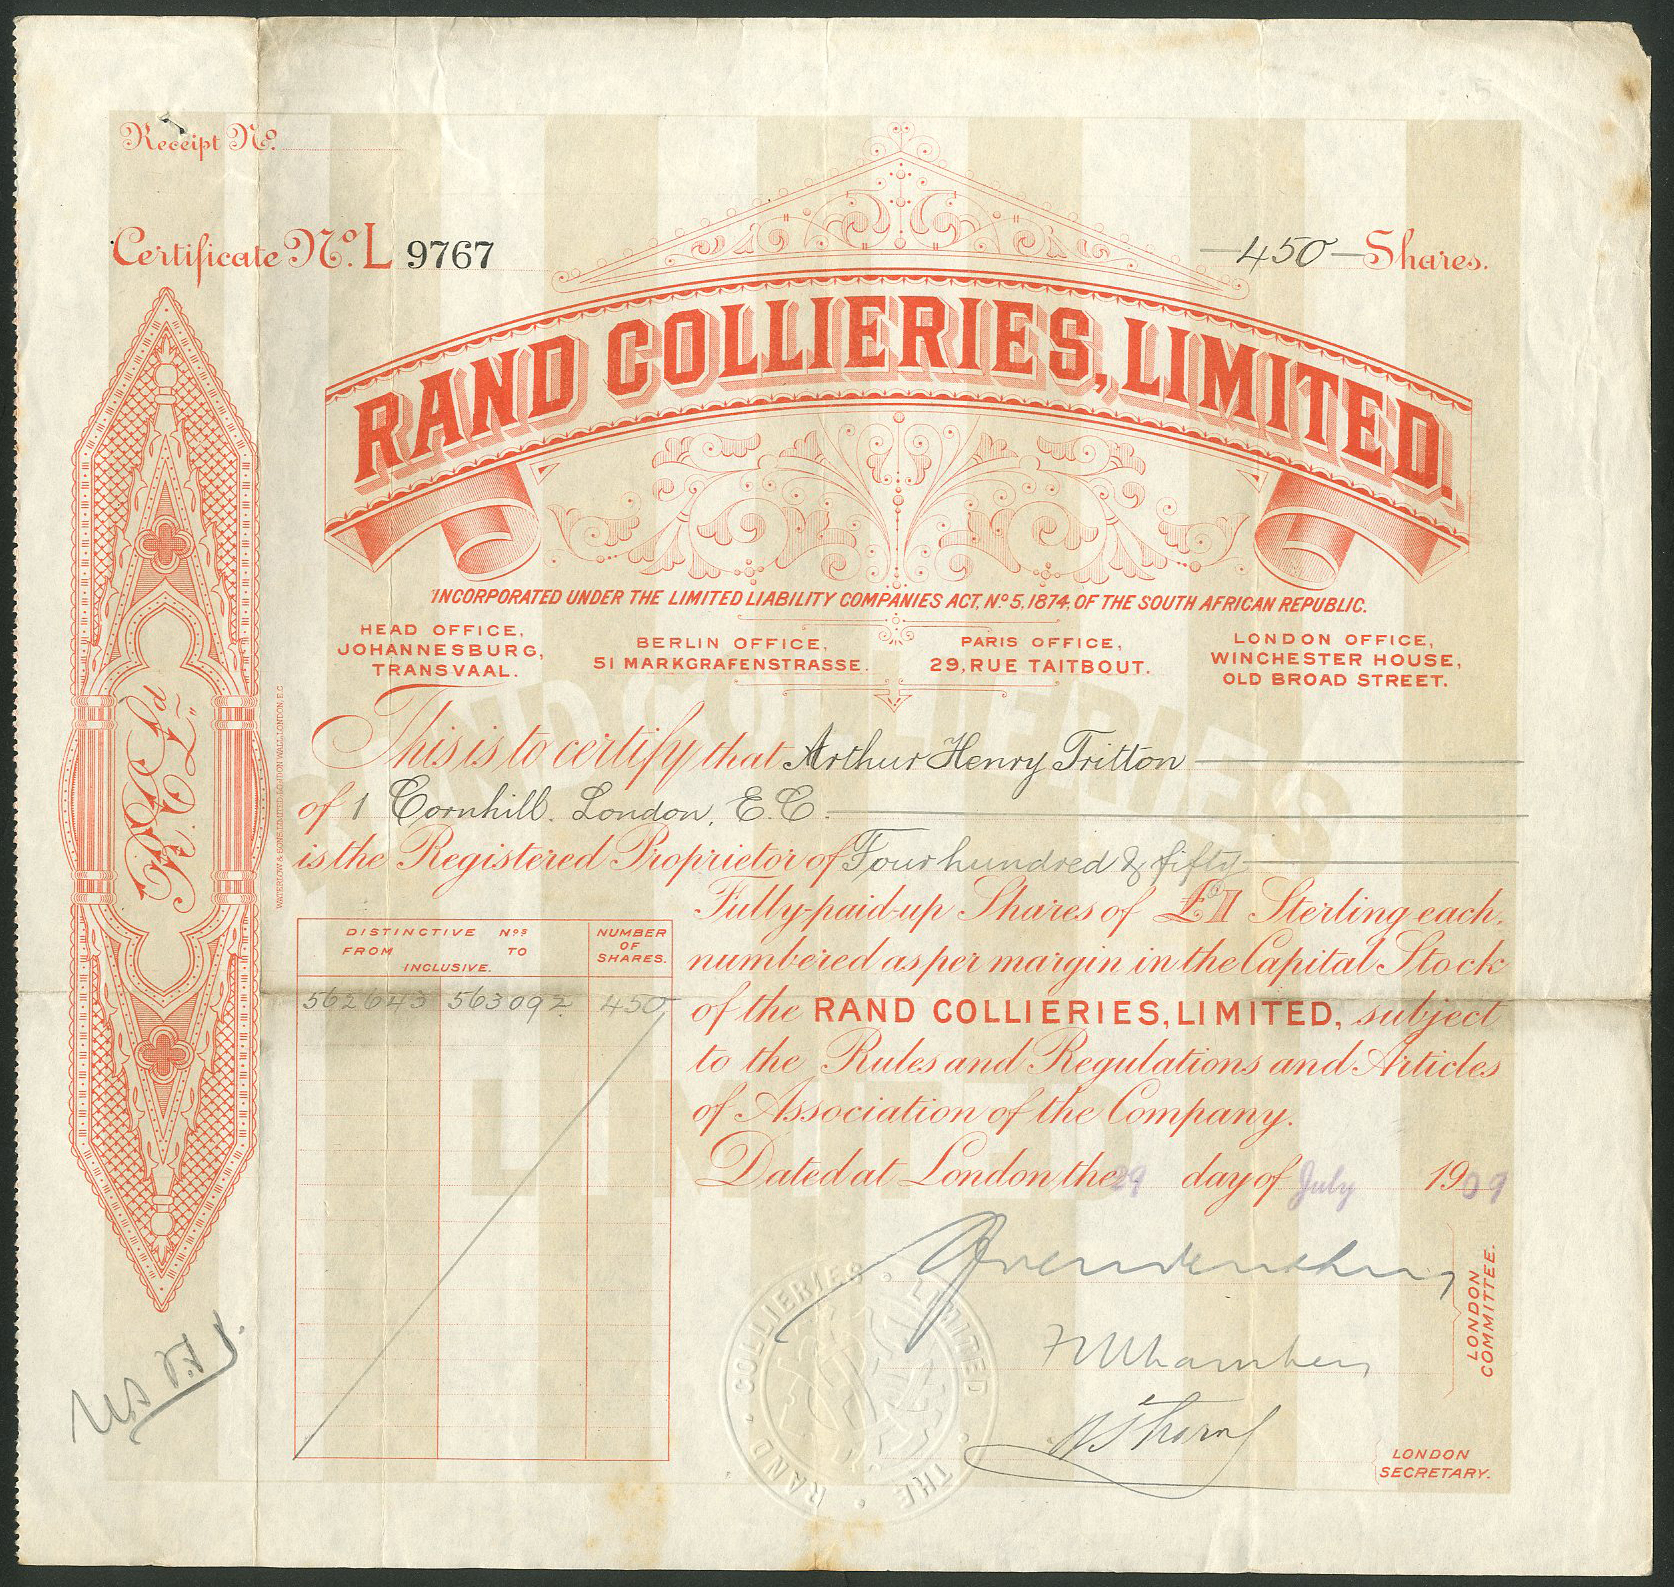 Receipt No.
Certificate No. L 9767
450 Shares.
RAND COLLIERIES, LIMITED.
INCORPORATED UNDER THE LIMITED LIABILITY COMPANIES ACT, No. 5, 1874, OF THE SOUTH AFRICAN REPUBLIC.
HEAD OFFICE,
JOHANNESBURG,
TRANSVAAL.
BERLIN OFFICE,
51 MARKGRAFENSTRASSE.
PARIS OFFICE,
29, RUE TAITBOUT.
LONDON OFFICE,
WINCHESTER HOUSE,
OLD BROAD STREET.
This is to certify that Arthur Henry Tritton
of 1 Cornhill. London, E.C.
is the Registered Proprietor of Four hundred & fifty
Fully-paid-up Shares of £1 Sterling each,
numbered as per margin in the Capital Stock
of the RAND COLLIERIES, LIMITED, subject
to the Rules and Regulations and Articles
of Association of the Company.
Dated at London the 29 day of July 1909
DISTINCTIVE Nos
FROM TO
INCLUSIVE.
NUMBER
OF
SHARES.
562643 563092 450
LONDON
COMMITTEE.
LONDON
SECRETARY.
THE RAND COLLIERIES LIMITED
R. C. Ld
WATERLOW & SONS LIMITED, LONDON WALL, LONDON, E.C.
RAND COLLIERIES
LIMITED